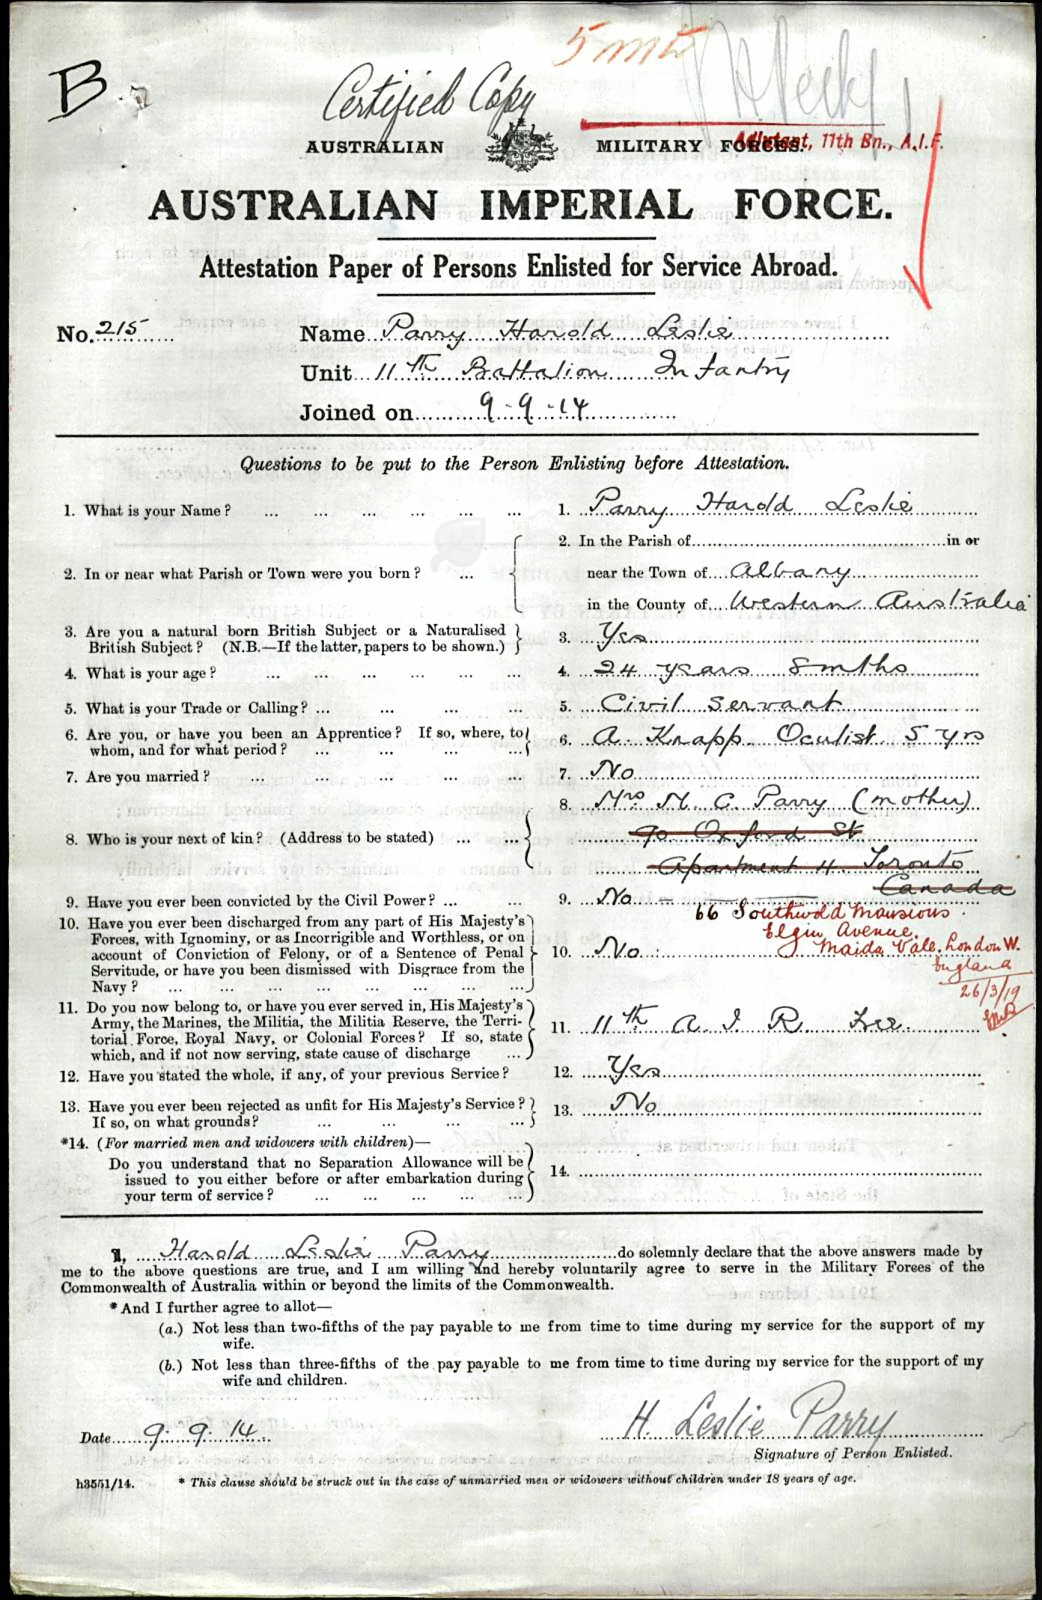 B
5 mts
Certified Copy
AUSTRALIAN MILITARY FORCES.
Adjutant, 11th Bn., A.I.F.
AUSTRALIAN IMPERIAL FORCE.
Attestation Paper of Persons Enlisted for Service Abroad.
No. 215 Name Parry Harold Leslie
Unit 11th Battalion Infantry
Joined on 9-9-14
Questions to be put to the Person Enlisting before Attestation.
1. What is your Name? ... ... ... ... ... 1. Parry Harold Leslie
2. In or near what Parish or Town were you born? ... 2. In the Parish of in or
near the Town of Albany
in the County of Western Australia
3. Are you a natural born British Subject or a Naturalised
British Subject? (N.B.—If the latter, papers to be shown.) 3. Yes
4. What is your age? ... ... ... ... ... 4. 24 years 8 mths
5. What is your Trade or Calling? ... ... ... ... 5. Civil Servant
6. Are you, or have you been an Apprentice? If so, where, to
whom, and for what period? ... ... ... ... 6. A. Knapp Oculist 5 yrs
7. Are you married? ... ... ... ... ... 7. No
8. Who is your next of kin? (Address to be stated) ... ... 8. Mrs M. C. Parry (mother)
90 Oxford St
Apartment 4 Toronto
Canada
9. Have you ever been convicted by the Civil Power? ... ... 9. No
66 Southwold Mansions
Elgin Avenue.
Maida Vale. London W.
England
26/3/19
10. Have you ever been discharged from any part of His Majesty's
Forces, with Ignominy, or as Incorrigible and Worthless, or on
account of Conviction of Felony, or of a Sentence of Penal
Servitude, or have you been dismissed with Disgrace from the
Navy? ... ... ... ... ... ... ... 10. No
11. Do you now belong to, or have you ever served in, His Majesty's
Army, the Marines, the Militia, the Militia Reserve, the Terri-
torial Force, Royal Navy, or Colonial Forces? If so, state
which, and if not now serving, state cause of discharge ... 11. 11th A I R
12. Have you stated the whole, if any, of your previous Service? 12. Yes
13. Have you ever been rejected as unfit for His Majesty's Service?
If so, on what grounds? ... ... ... ... 13. No
*14. (For married men and widowers with children)—
Do you understand that no Separation Allowance will be
issued to you either before or after embarkation during
your term of service? ... ... ... ... 14.
I, Harold Leslie Parry do solemnly declare that the above answers made by
me to the above questions are true, and I am willing and hereby voluntarily agree to serve in the Military Forces of the
Commonwealth of Australia within or beyond the limits of the Commonwealth.
* And I further agree to allot—
(a.) Not less than two-fifths of the pay payable to me from time to time during my service for the support of my
wife.
(b.) Not less than three-fifths of the pay payable to me from time to time during my service for the support of my
wife and children.
Date 9. 9. 14. H. Leslie Parry
Signature of Person Enlisted.
h3551/14. * This clause should be struck out in the case of unmarried men or widowers without children under 18 years of age.